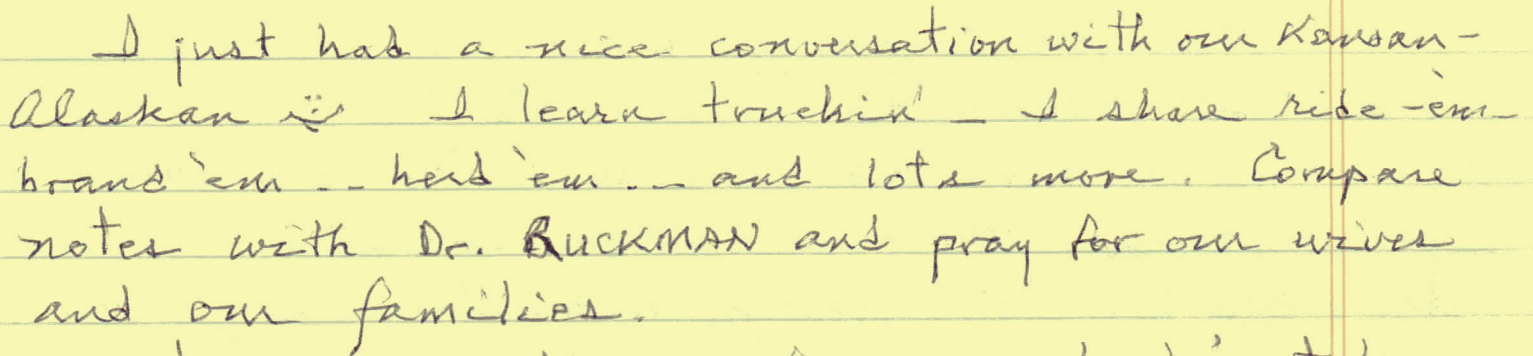 I just had a nice conversation with our Kansan-
Alaskan I learn truckin' - I share ride-'em-
brand 'em -- herd 'em -- and lots more. Compare
notes with Dr. RUCKMAN and pray for our wives
and our families.